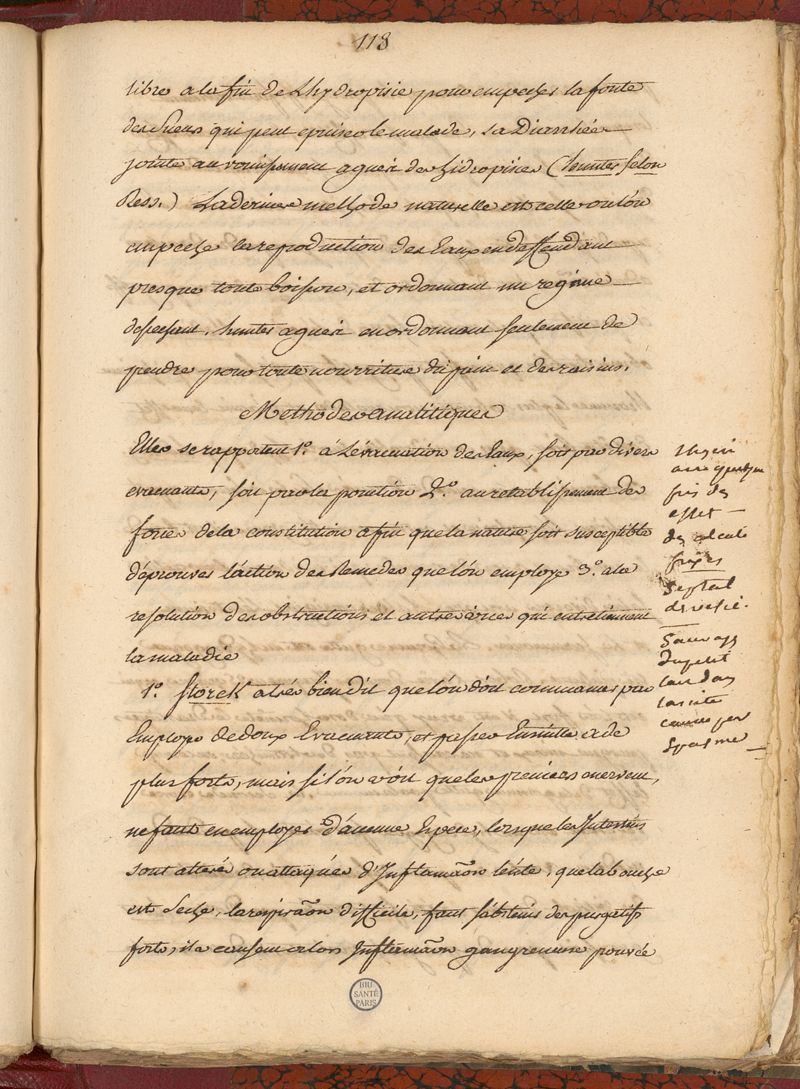 113
libre a la fin de Lhydropisie pour empecher la fonte
des Sueurs qui peut epuiser le malade, La Diarrhée
jointe au vomissement a gueri des hidropisies (hunter selon
Ress.) La derniere methode naturelle est celle ou lón
empeche la reproduction des Eaux en deffendant
presque toute boisson, et ordonnant un regime
dessechant. hunter a gueri en ordonnant seulement de
prendre pour toute nourriture du pain et des raisins.
Methodes analitiques
Elles se rapportent 1.º á Lévacuation des Eaux, soit par divers
evacuants, soit par les 2.º au retablissement des
forces de la constitution afin que la nature soit susceptible
d'éprouver láction des Remedes que lón employe 3.º a la
resolution des obstructions et autres vices qui entretiennent
la maladie
1.º Storck a tres bien dit que lón dóit commencer par
Employer de doux Evacuants, et passer Ensuitte a de
plus forts, mais si lón vóit que les premiers enervent,
ne faut en employer d'áucune Espece, lorsque les Intestins
sont alterés ou attaqués d'Inflamãon lente, que la bouche
est Seche, la respirãon difficile, faut sábstenir des purgatifs
forts, ils causent alors Inflamãon gangreneuse
effet
des
fixes
Sauvages
comme par
Spasme
BIU
SANTÉ
PARIS